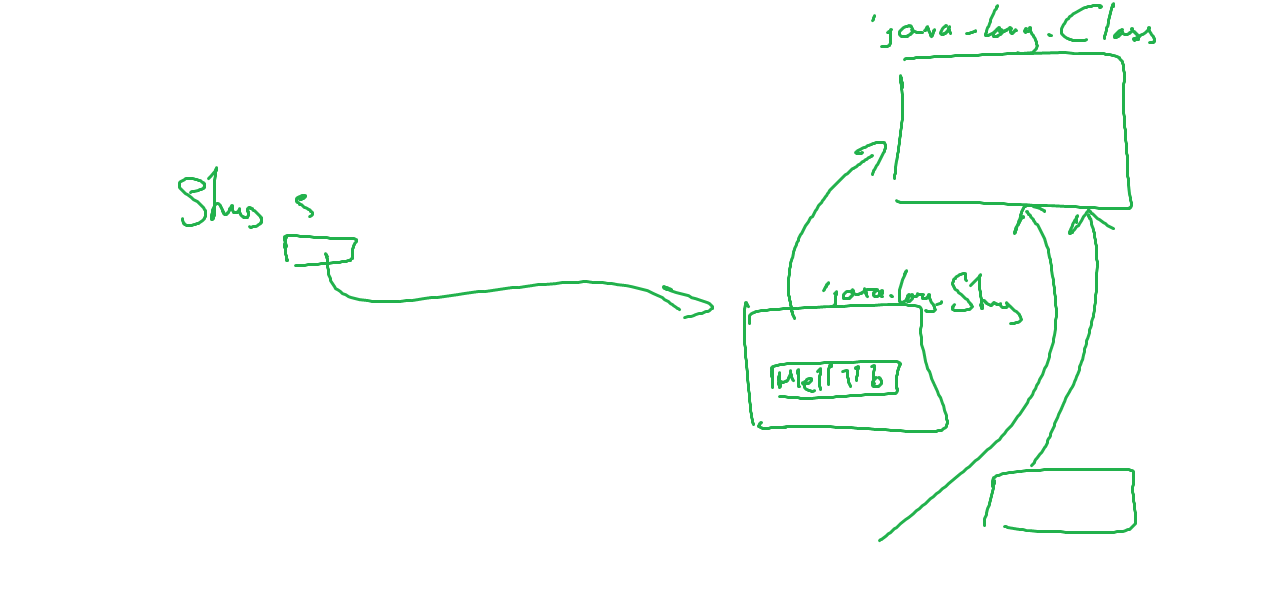 java.lang.Class
String s
java.lang.String